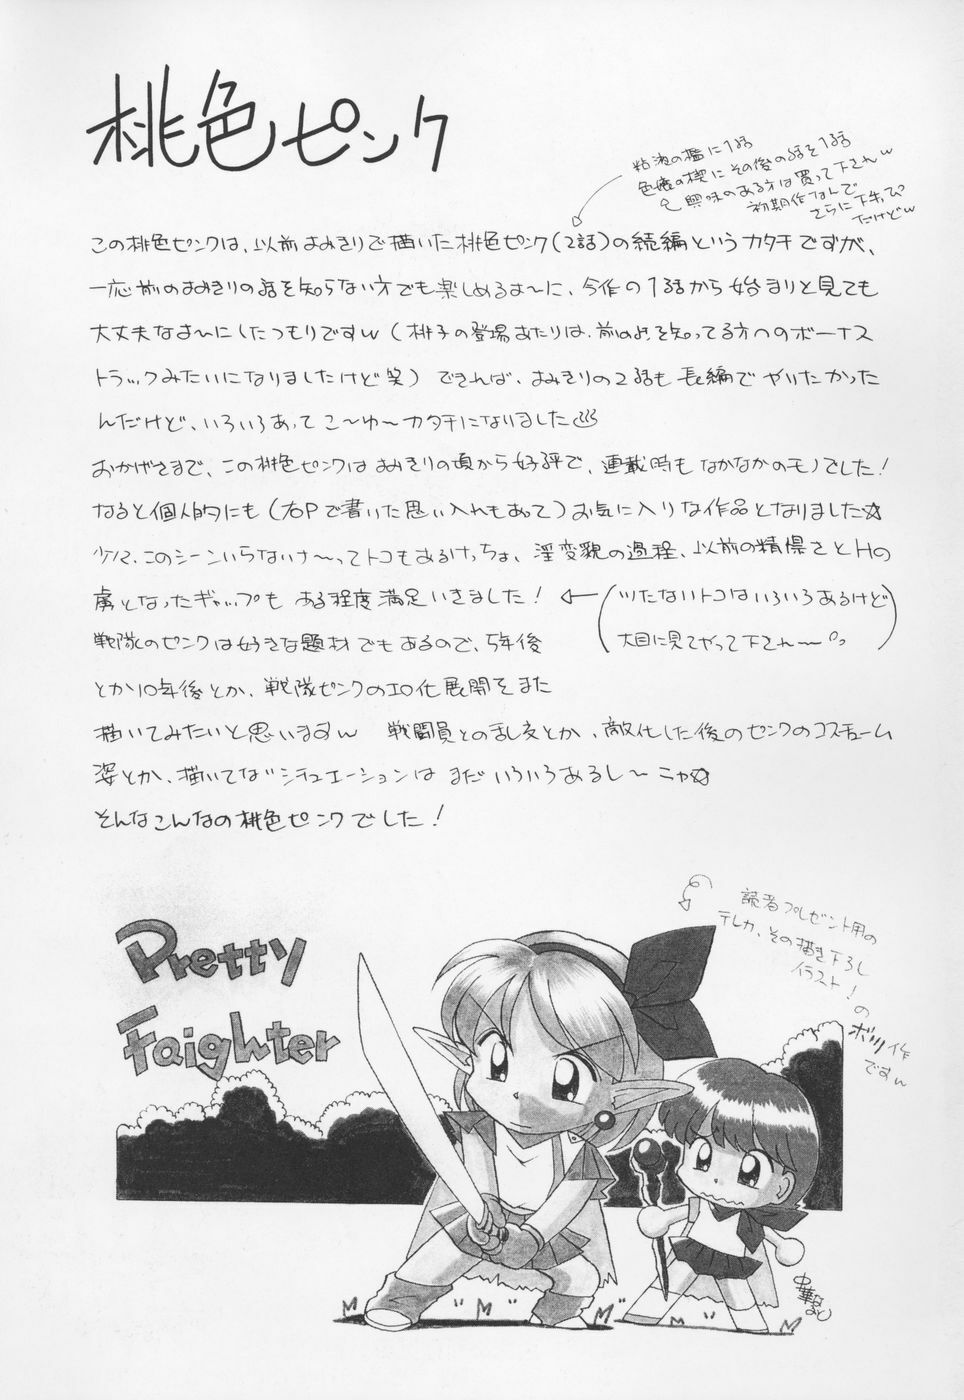 桃色ピンク
粘液の檻に1話
色魔の楔にその後の話を1話
興味のある方は買って下されw
初期作なんで
さらに下手っぴ
だけどw
この桃色ピンクは、以前よみきりで描いた桃色ピンク(2話)の続編というカタチですが、
一応前のよみきりの話を知らない方でも楽しめるよーに、今作の1話から始まりと見ても
大丈夫なよーにしたつもりですw(桃子の登場あたりは、前のよみを知ってる方へのボーナス
トラックみたいになりましたけど笑)できれば、よみきりの2話も長編でやりたかった
んだけど、いろいろあってこ〜ゆ〜カタチになりました
おかげさまで、この桃色ピンクはよみきりの頃から好評で、連載時もなかなかのモノでした!
なると個人的にも(右Pで書いた思い入れもあって)お気に入りな作品となりました☆
少々、このシーンいらないけ〜ってトコもあるけっちょ、淫変貌の過程、以前の精悍さとHの
虜となったギャップも ある程度満足いきました!
(ツたないトコはいろいろあるけど
大目に見てやって下され〜)
戦隊のピンクは好きな題材でもあるので、5年後
とか10年後とか、戦隊ピンクのエロ化展開をまた
描いてみたいと思いますw 戦闘員との乱交とか、敵化した後のピンクのコスチューム
姿とか、描いてないシチュエーションはまだいろいろあるし〜ニャ☆
そんなこんなの桃色ピンクでした!
読者プレゼント用の
テレカ、その描き下ろし
イラスト!
の
ボツ作
ですw
Pretty
Faighter